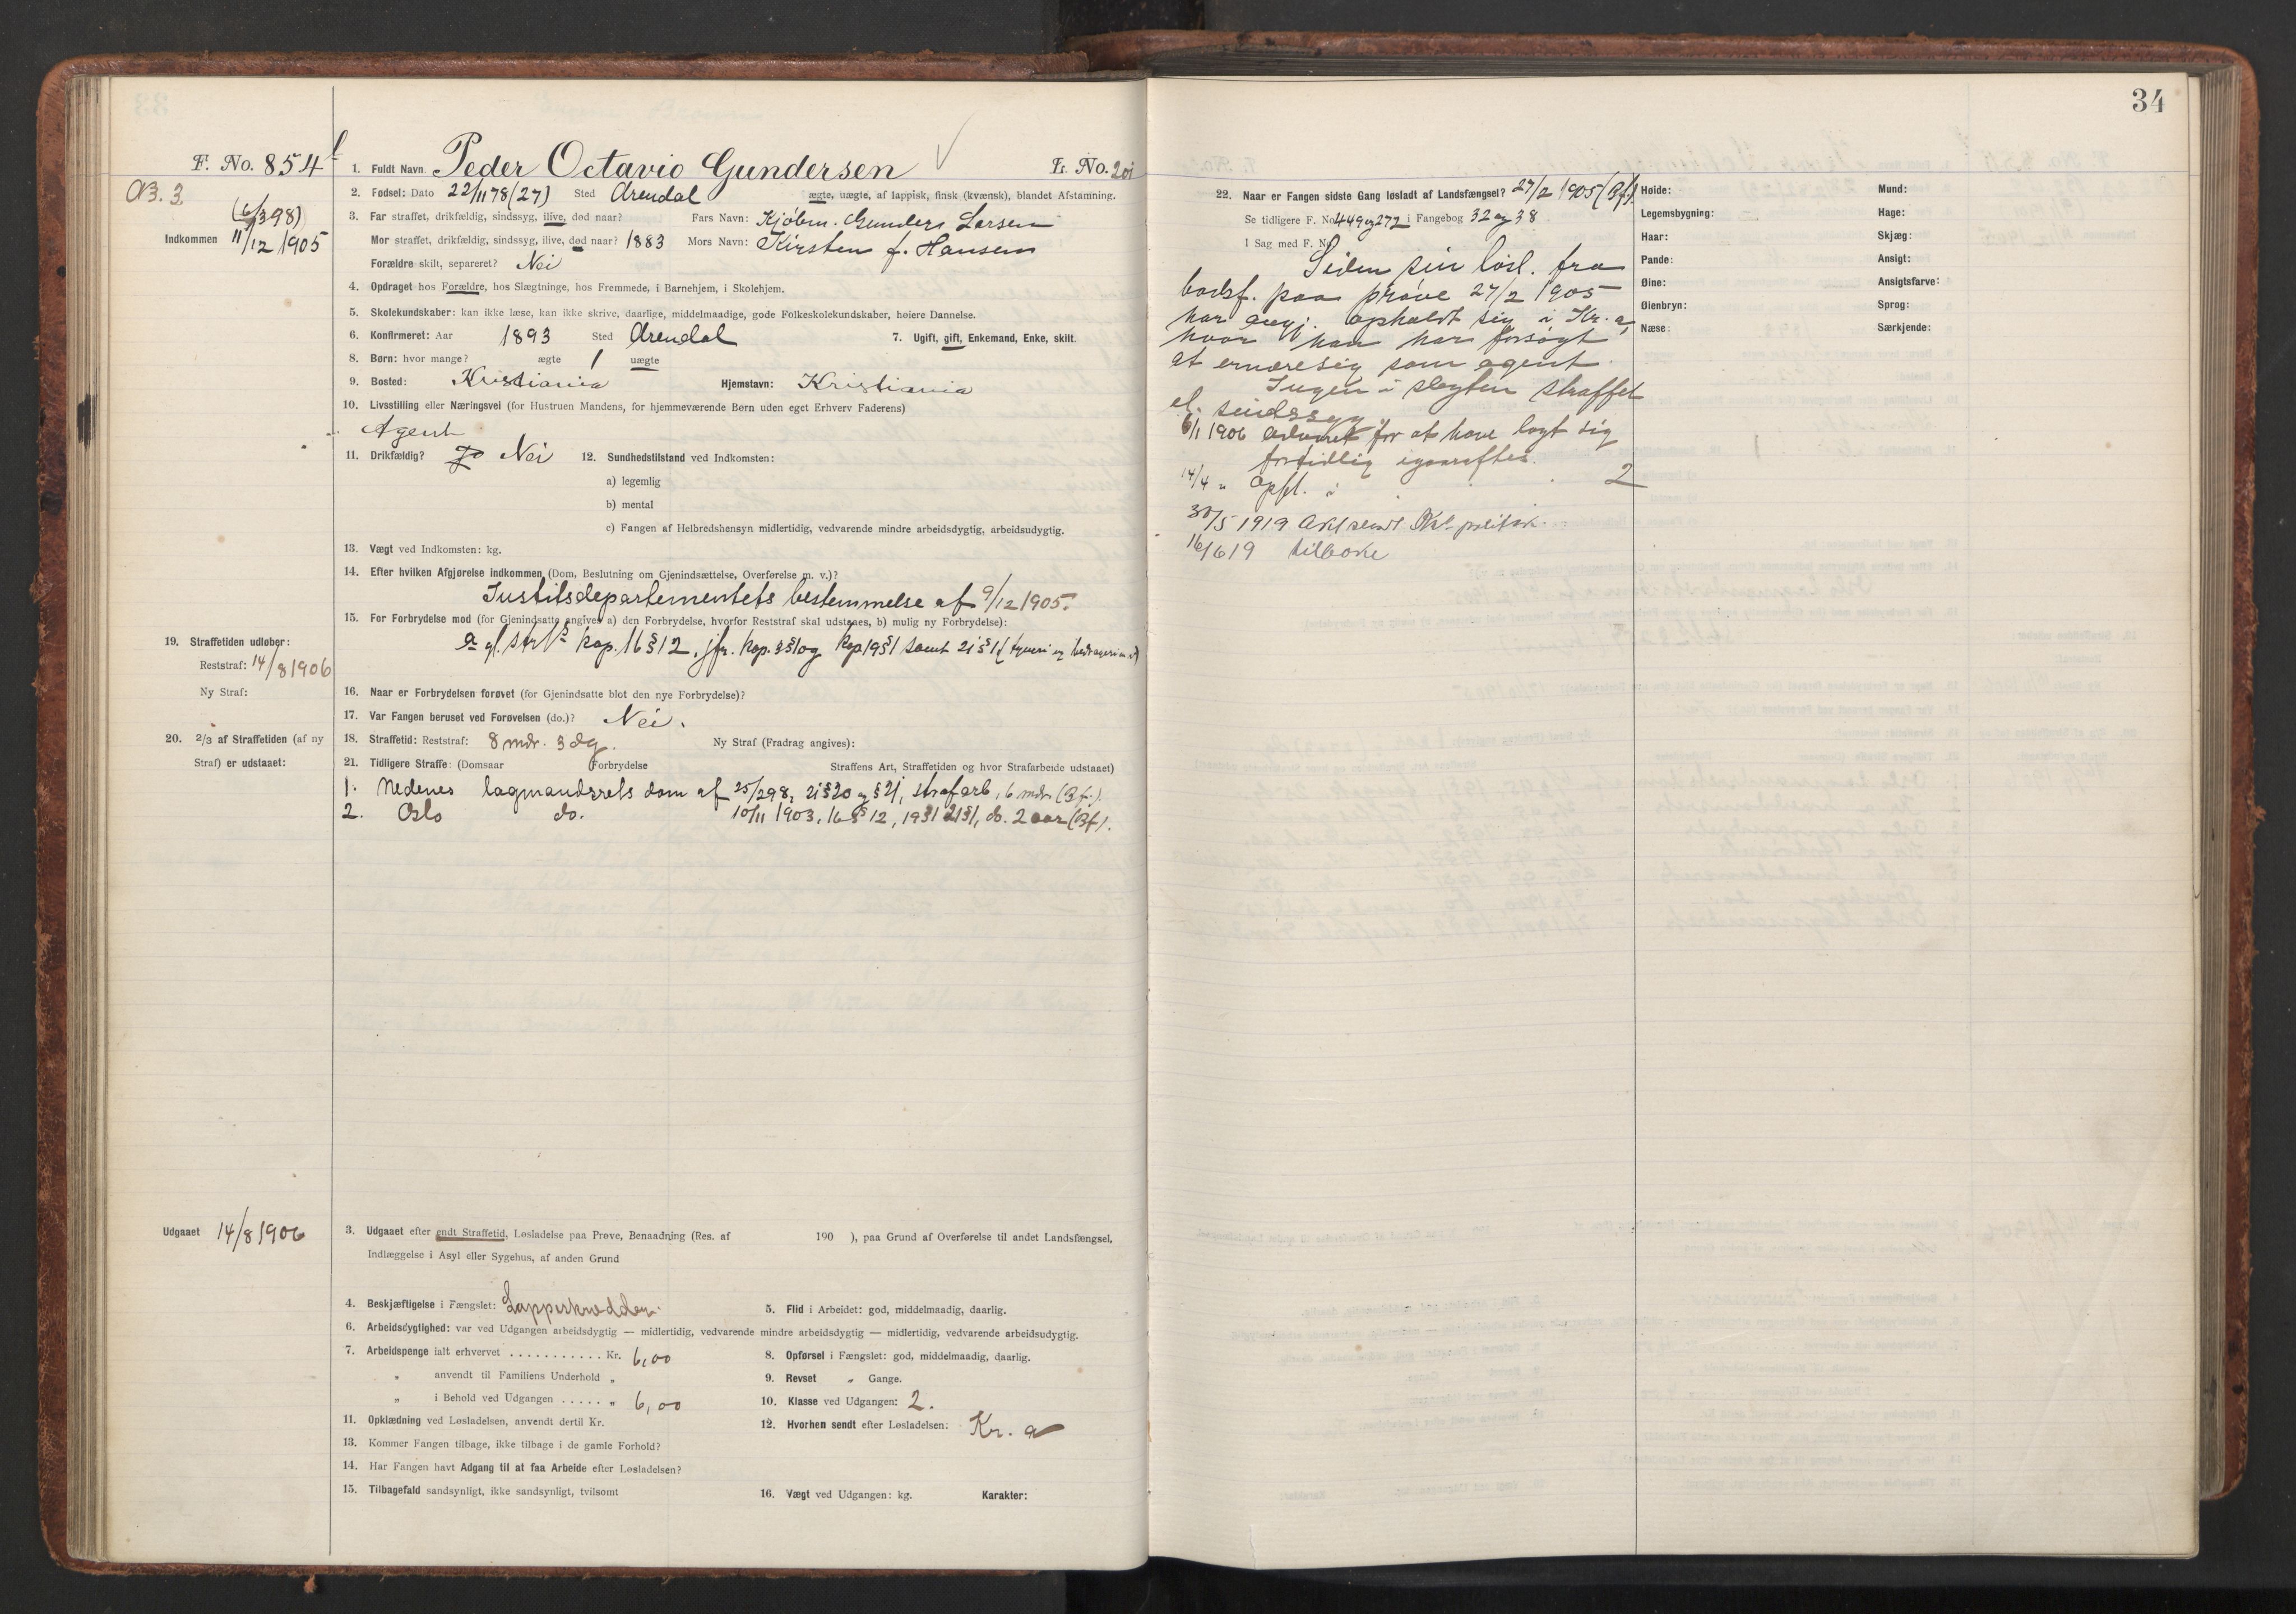 F. No. 854
1. Fuldt Navn Peder Octavio Gundersen L. No. 201
B. 3
2. Fødsel: Dato 22/11 78 (27) Sted Arendal ægte, uægte, af lappisk, finsk (kvænsk), blandet Afstamning.
(6/3 98)
Indkommen 11/12 1905
3. Far straffet, drikfældig, sindssyg, ilive, død naar? Fars Navn: Kjøbm. Gunders Larsen
Mor straffet, drikfældig, sindssyg, ilive, død naar? 1883 Mors Navn: Kirsten f. Hansen
Forældre skilt, separeret? Nei
4. Opdraget hos Forældre, hos Slægtninge, hos Fremmede, i Barnehjem, i Skolehjem.
5. Skolekundskaber: kan ikke læse, kan ikke skrive, daarlige, middelmaadige, gode Folkeskolekundskaber, høiere Dannelse.
6. Konfirmeret: Aar 1893 Sted Arendal 7. Ugift, gift, Enkemand, Enke, skilt.
8. Børn: hvor mange? ægte 1 uægte
9. Bosted: Kristiania Hjemstavn: Kristiania
10. Livsstilling eller Næringsvei (for Hustruen Mandens, for hjemmeværende Børn uden eget Erhverv Faderens)
Agent
11. Drikfældig? Jo Nei 12. Sundhedstilstand ved Indkomsten:
a) legemlig
b) mental
c) Fangen af Helbredshensyn midlertidig, vedvarende mindre arbeidsdygtig, arbeidsudygtig.
13. Vægt ved Indkomsten: kg.
14. Efter hvilken Afgjørelse indkommen (Dom, Beslutning om Gjenindsættelse, Overførelse m. v.)?
Justitsdepartementets bestemmelse af 9/12 1905.
15. For Forbrydelse mod (for Gjenindsatte angives a) den Forbrydelse, hvorfor Reststraf skal udstaaes, b) mulig ny Forbrydelse):
a gl. str kap. 16 § 12, jfr. kap. § 1 og kap 19 § 1 samt 21 § 1 (tyveri og bedrageri
19. Straffetiden udløber:
Reststraf: 14/8 1906
Ny Straf:
16. Naar er Forbrydelsen forøvet (for Gjenindsatte blot den nye Forbrydelse)?
17. Var Fangen beruset ved Forøvelsen (do.)? Nei.
20. 2/3 af Straffetiden (af ny
Straf) er udstaaet:
18. Straffetid: Reststraf: 8 mdr. 3 dg. Ny Straf (Fradrag angives):
21. Tidligere Straffe: (Domsaar Forbrydelse Straffens Art, Straffetiden og hvor Strafarbeide udstaaet)
1. Nedenes lagmandsrets dom af 25/2 98, 21 § 20 og § 21, strafarb, 6 mdr (Bf.).
2. Oslo do. 10/11 1903, 16 § 12, 19 § 1 21 § 1, do. 2 aar (Bf).
Udgaaet 14/8 1906
3. Udgaaet efter endt Straffetid, Løsladelse paa Prøve, Benaadning (Res. af 190 ), paa Grund af Overførelse til andet Landsfængsel,
Indlæggelse i Asyl eller Sygehus, af anden Grund
4. Beskjæftigelse i Fængslet: Lappeskrædder. 5. Flid i Arbeidet: god, middelmaadig, daarlig.
6. Arbeidsdygtighed: var ved Udgangen arbeidsdygtig — midlertidig, vedvarende mindre arbeidsdygtig — midlertidig, vedvarende arbeidsudygtig.
7. Arbeidspenge ialt erhvervet ........... Kr. 6,00 8. Opførsel i Fængslet: god, middelmaadig, daarlig.
„ anvendt til Familiens Underhold „ 9. Revset „ Gange.
„ i Behold ved Udgangen ..... „ 6,00 10. Klasse ved Udgangen: 2.
11. Opklædning ved Løsladelsen, anvendt dertil Kr. 12. Hvorhen sendt efter Løsladelsen: Kr. a
13. Kommer Fangen tilbage, ikke tilbage i de gamle Forhold?
14. Har Fangen havt Adgang til at faa Arbeide efter Løsladelsen?
15. Tilbagefald sandsynligt, ikke sandsynligt, tvilsomt 16. Vægt ved Udgangen: kg. Karakter:
34
22. Naar er Fangen sidste Gang løsladt af Landsfængsel? 27/2 1905 (Bf.)
Se tidligere F. No 449 og 272 i Fangebog 32 og 38
I Sag med F. No
Siden sin løsl. fra
bodsf. paa prøve 27/2 1905
har angj. opholdt sig i Kr. a,
hvor han har forsøgt
at ernære sig som agent.
Ingen i slegten straffet
el. sindssyg.
6/1 1906 advaret for at have lagt sig
fortidlig igaaraftes.
14/4 „ Opfl. i 2
30/5 1919 Akt sendt Kr. politik.
16/6 19 tilbake
Høide: Mund:
Legemsbygning: Hage:
Haar: Skjæg:
Pande: Ansigt:
Øine: Ansigtsfarve:
Øienbryn: Sprog:
Næse: Særkjende: